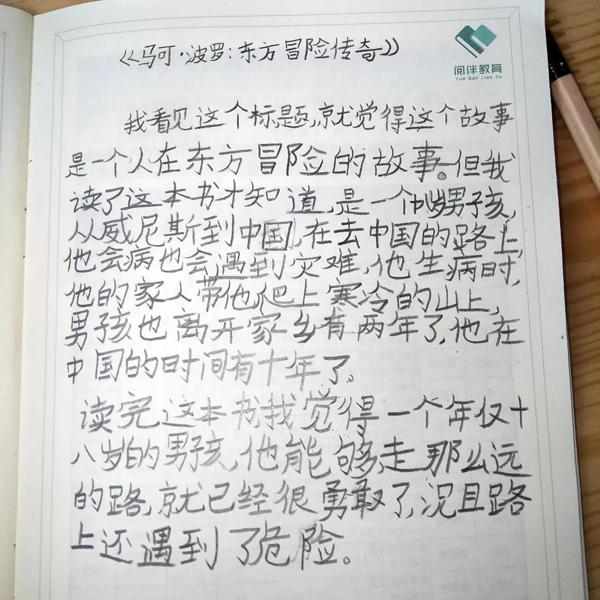 《马可·波罗:东方冒险传奇》
阅伴教育
YUE BAN JIAO YU
我看见这个标题,就觉得这个故事
是一个人在东方冒险的故事。但我
读了这本书才知道,是一个小男孩,
从威尼斯到中国,在去中国的路上,
他会病也会遇到灾难,他生病时,
他的家人带他爬上寒冷的山上,
男孩也离开家乡有两年了,他在
中国的时间有十年了。
读完这本书我觉得一个年仅十
八岁的男孩,他能够走那么远
的路,就已经很勇敢了,况且路
上还遇到了危险。